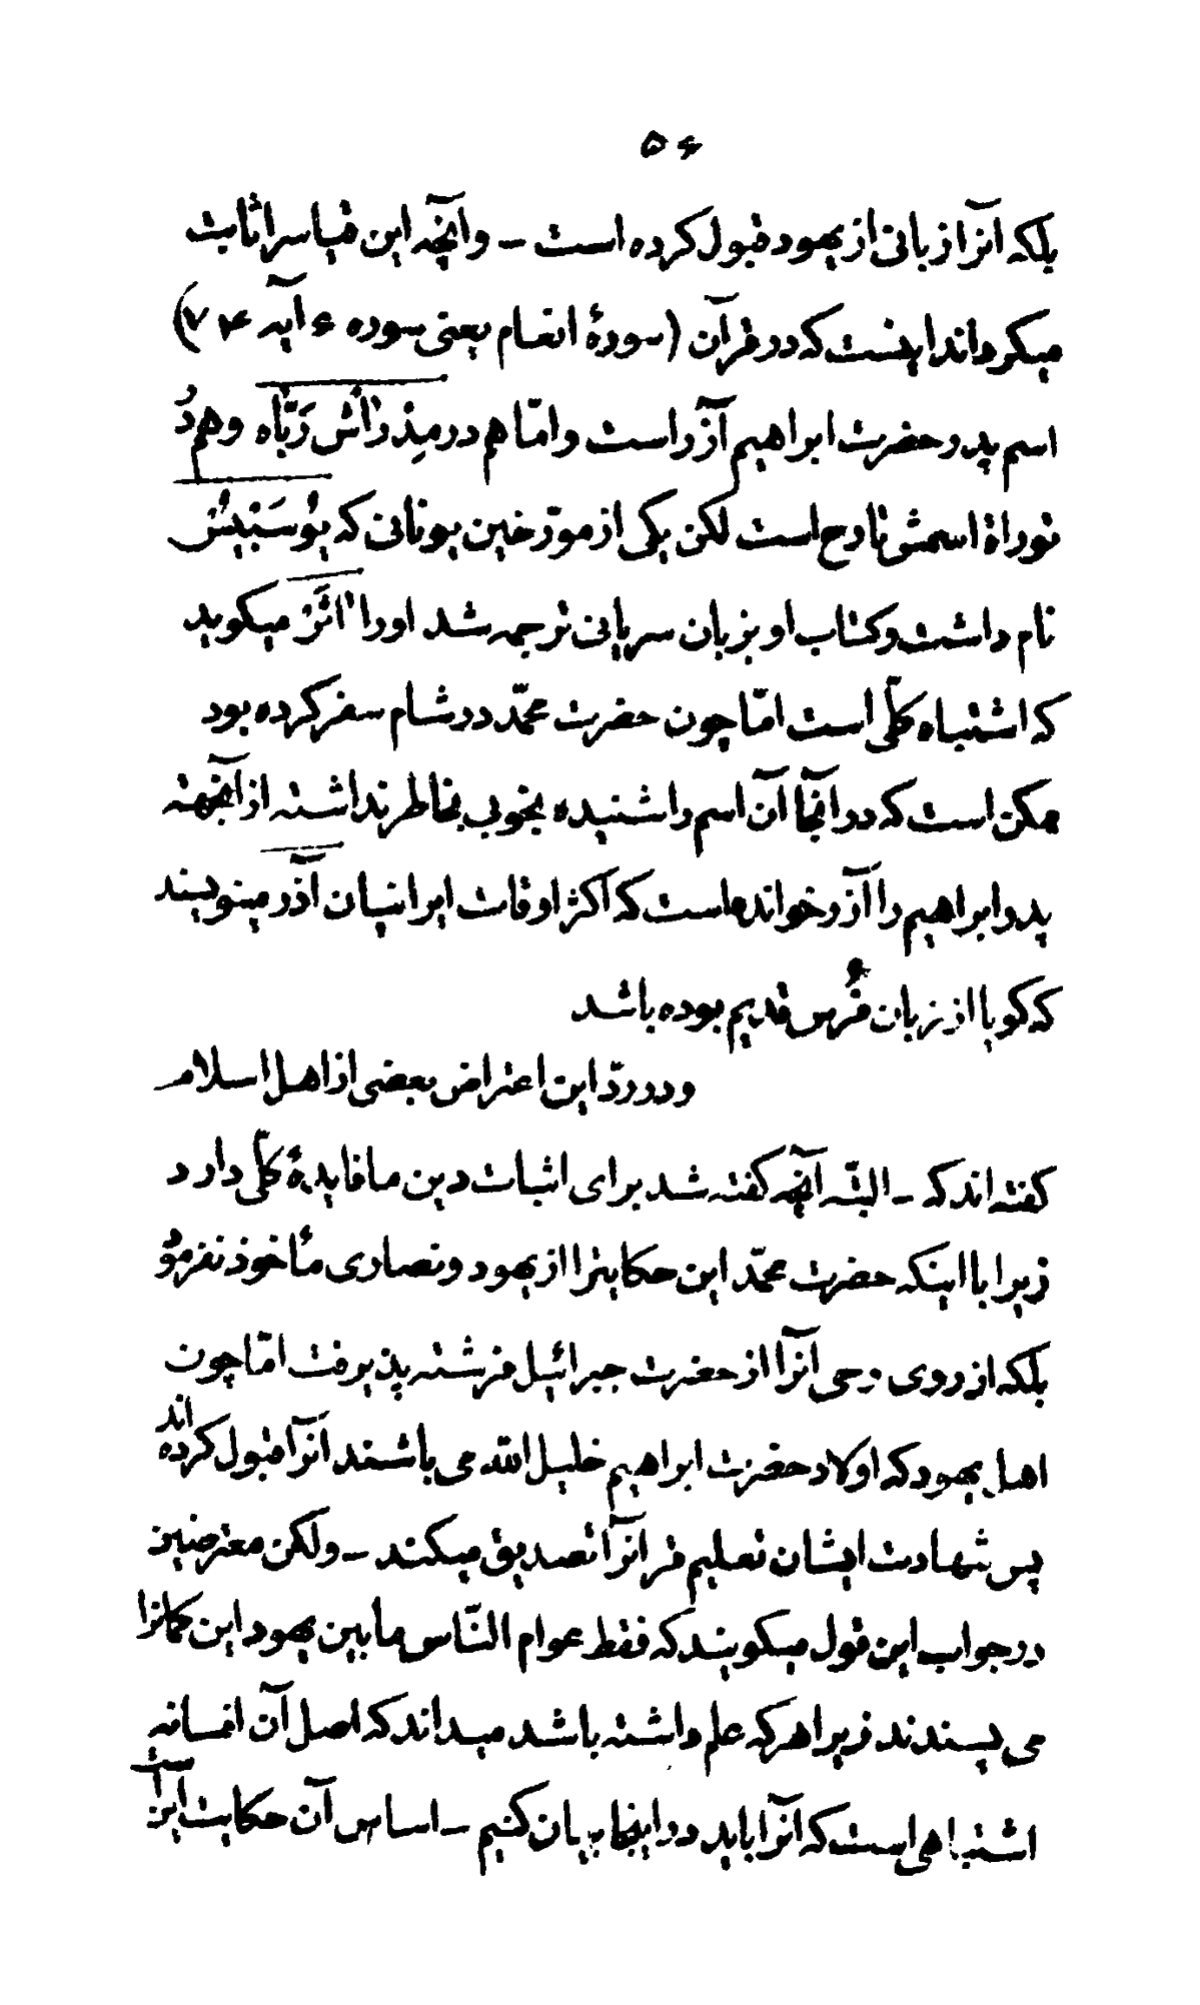 ۵۶
بلکه آنرا زبانی از یهود قبول کرده است – و آنچه این قیاس را ثابت
میکرداند اینست که در قرآن (سورهٔ انعام یعنی سوره ۶ آیه ۷۴)
اسم پدر حضرت ابراهیم آزر است و امّا هم در مِذراش رَبّاه و هم دُ
توراة اسمش تارح است لکن یکی از مورّخین یونانی که یُوسَبیُس
نام داشت و کتاب او بزبان سریانی ترجمه شد او را اَثَرْ میکوید
که اشتباه کلّی است امّا چون حضرت محمّد در شام سفر کرده بود
ممکن است که در آنجا آن اسم را شنیده بخوبی بخاطر نداشته از آنجهته
پدر ابراهیم را آزر خوانده است که اکثر اوقات ایرانیان آذر مینویسند
که کویا از زبان فُرس قدیم بوده باشد
و در ردّ این اعتراض بعضی از اهل اسلام
کفته اند که – البتّه آنچه کفته شد برای اثبات دین ما فایدهٔ کلّی دارد
زیرا با اینکه حضرت محمّد این حکایترا از یهود و نصاری مأخوذ نفرمؤ
بلکه از روی وحی آنرا از حضرت جبرائیل فرشته پذیرفت امّا چون
اهل یهود که اولاد حضرت ابراهیم خلیل الله می باشند آنرا قبول کرده اند
پس شهادت ایشان تعلیم قرآنرا تصدیق میکند – ولکن معترضین
در جواب این قول میکویند که فقط عوام النّاس ما بین یهود این کمانرا
می پسندند زیرا هر که علم داشته باشد میداند که اصل آن افسانه
اشتباهی است که آنرا باید در اینجا بیان کنیم – اساس آن حکایت این آست